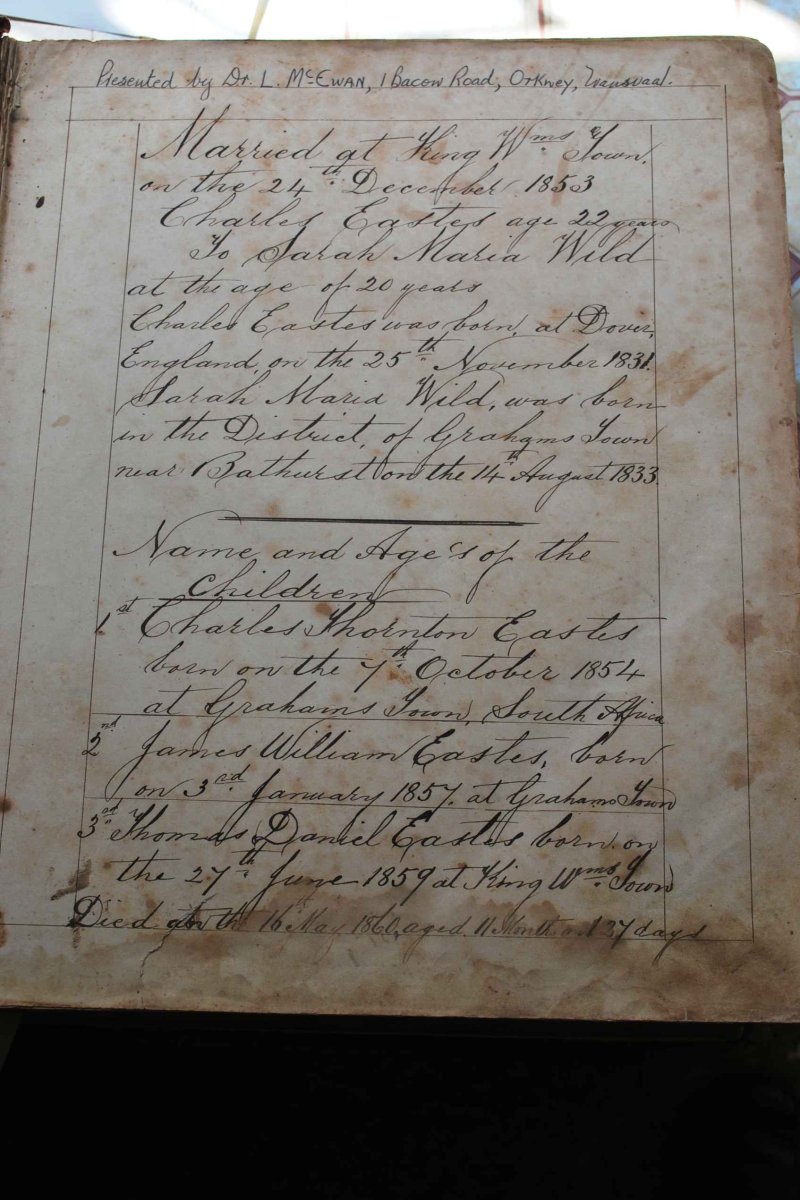 Presented by Dr. L. McEwan, 1 Bacon Road, Orkney, Transvaal.
Married at King Wms Town,
on the 24th December 1853
Charles Eastes age 22 years
To Sarah Maria Wild
at the age of 20 years
Charles Eastes was born, at Dover,
England, on the 25th November 1831.
Sarah Maria Wild, was born
in the District, of Grahams Town
near Bathurst on the 14th August 1833.
Name and Age's of the
Children
1st Charles Thornton Eastes
born on the 7th October 1854
at Grahams Town, South Africa
2nd James William Eastes, born
on 3rd January 1857. at Grahams Town
3rd Thomas Daniel Eastes born on
the 27th June 1859 at King Wms Town
Died on the 16 May 1860, aged 11 Month 27 days